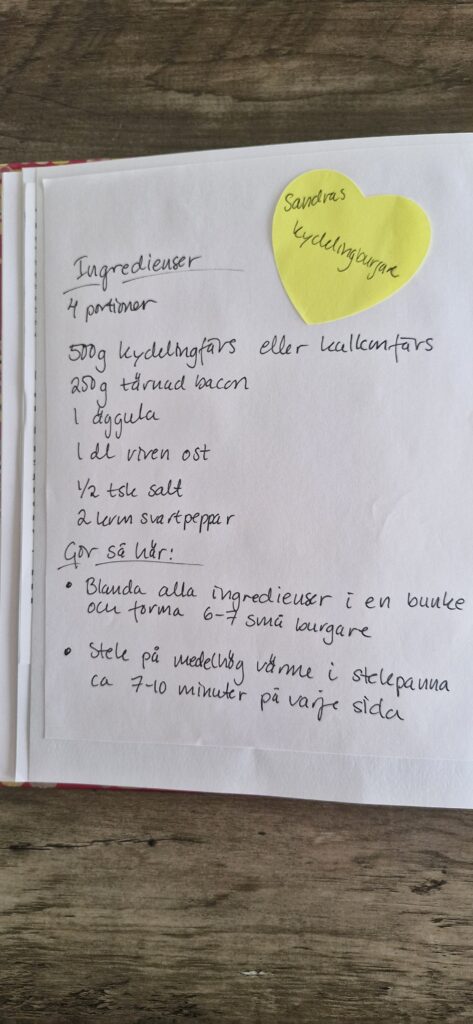 Sandras
kycklingburgare
Ingredienser
4 portioner
500g kycklingfärs eller kalkonfärs
250g tärnad bacon
1 äggula
1 dl riven ost
1/2 tsk salt
2 krm svartpeppar
Gör så här:
• Blanda alla ingredienser i en bunke
och forma 6-7 små burgare
• Stek på medelhög värme i stekpanna
ca 7-10 minuter på varje sida